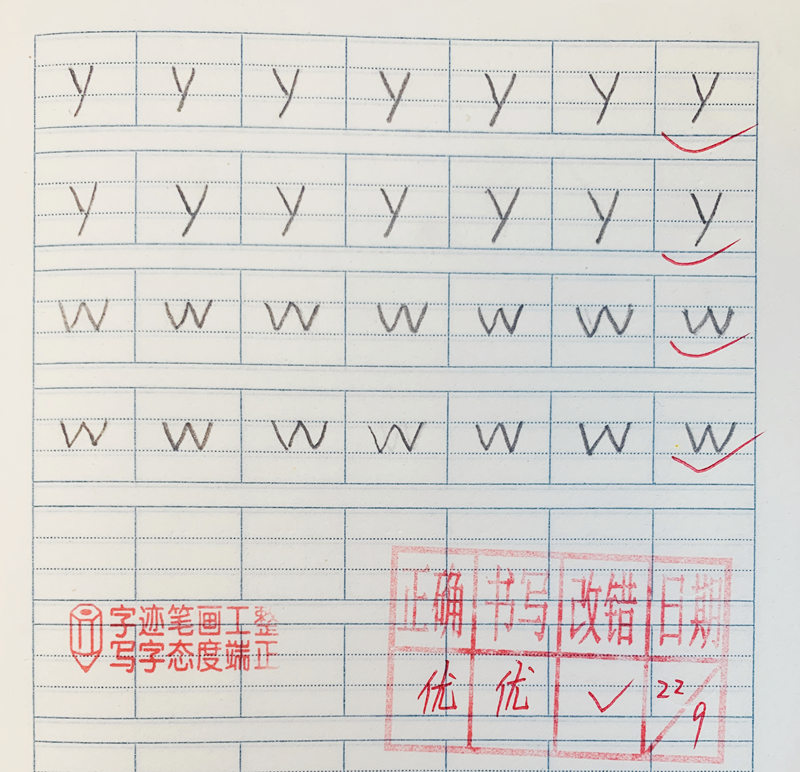 y y y y y y y
y y y y y y y
w w w w w w w
w w w w w w w
字迹笔画工整
写字态度端正
正确 书写 改错 日期
优 优 ✓ 22/9